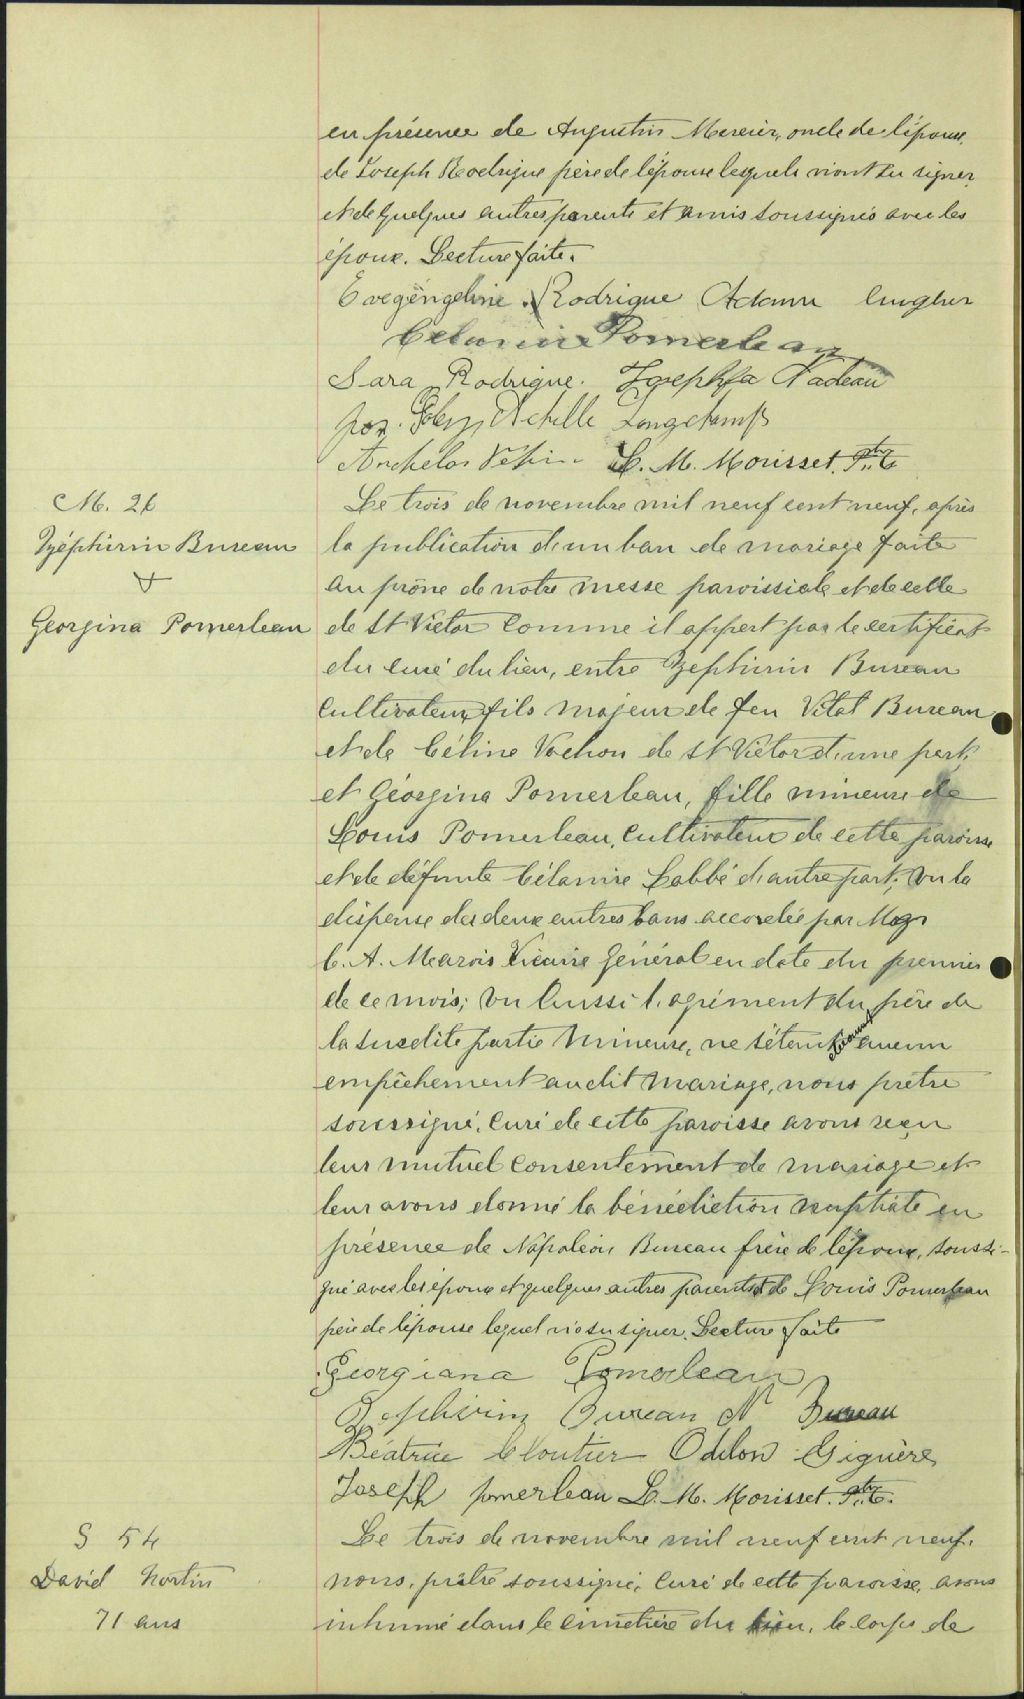 en présence de Augustin Mercier, oncle de l'épouse,
de Joseph Rodrigue père de l'épouse lesquels n'ont su signer,
et de quelques autres parents et amis soussignés avec les
époux. Lecture faite.
Rodrigue Adam
Pomerleau
Sara Rodrigue. Nadeau
Jos. Achille Longchamps
L. M. Morisset. Ptre
M. 26
Zéphirin Bureau
&
Georgina Pomerleau
Le trois de novembre mil neuf cent neuf, après
la publication d'un ban de mariage faite
au prône de notre messe paroissiale et de celle
de St Victor comme il appert par le certificat
du curé du lieu, entre Zephirin Bureau
cultivateur fils majeur de feu Vital Bureau
et de Céline Vachon de St Victor d'une part,
et Géorgina Pomerleau, fille mineure de
Louis Pomerleau, cultivateur de cette paroisse
et de défunte Célanire Labbé d'autre part; vu la
dispense des deux autres bans accordée par Mgr
C. A. Marois Vicaire Général en date du premier
de ce mois; vu aussi l'agrément du père de
la susdite partie mineure, ne s'étant découvert aucun
empêchement au dit mariage, nous prêtre
soussigné, curé de cette paroisse avons reçu
leur mutuel consentement de mariage et
leur avons donné la bénédiction nuptiale en
présence de Napoléon Bureau frère de l'époux, soussi-
gné avec les époux et quelques autres parents et de Louis Pomerleau
père de l'épouse lequel n'a su signer. Lecture faite
Georgiana Pomerleau
Zephirin Bureau N Bureau
Béatrice Cloutier Odilon Giguère
Joseph pomerleau L. M. Morisset. Ptre.
S 54
David
71 ans
Le trois de novembre mil neuf cent neuf,
nous, prêtre soussigné, curé de cette paroisse, avons
inhumé dans le cimetière du lieu, le corps de